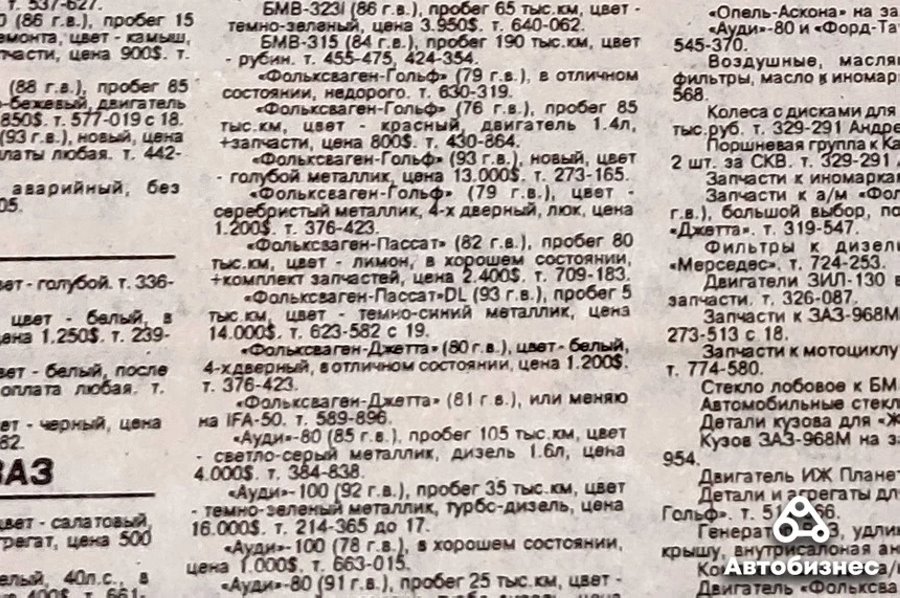 т. 537-627.
(86 г.в.), пробег 15
емонта, цвет - камыш,
пчасти, цена 900$. т.
(88 г.в.), пробег 85
о-бежевый, двигатель
850$. т. 577-019 с 18.
(93 г.в.), новый, цена
платы любая. т. 442-
аварийный, без
05.
вет - голубой. т. 336-
цвет - белый, в
ена 1.250$. т. 239-
вет - белый, после
оплата любая. т.
ет - черный, цена
62.
ВАЗ
цвет - салатовый,
грегат, цена 500
елый, 40л.с., в
400$. т. 661-
БМВ-323i (86 г.в.), пробег 65 тыс.км, цвет -
темно-зеленый, цена 3.950$. т. 640-062.
БМВ-315 (84 г.в.), пробег 190 тыс.км, цвет
- рубин. т. 455-475, 424-354.
«Фольксваген-Гольф» (79 г.в.), в отличном
состоянии, недорого. т. 630-319.
«Фольксваген-Гольф» (76 г.в.), пробег 85
тыс.км, цвет - красный, двигатель 1.4л,
+запчасти, цена 800$. т. 430-864.
«Фольксваген-Гольф» (93 г.в.), новый, цвет
- голубой металлик, цена 13.000$. т. 273-165.
«Фольксваген-Гольф» (79 г.в.), цвет -
серебристый металлик, 4-х дверный, люк, цена
1.200$. т. 376-423.
«Фольксваген-Пассат» (82 г.в.), пробег 80
тыс.км, цвет - лимон, в хорошем состоянии,
+комплект запчастей, цена 2.400$. т. 709-183.
«Фольксваген-Пассат»DL (93 г.в.), пробег 5
тыс.км, цвет - темно-синий металлик, цена
14.000$. т. 623-582 с 19.
«Фольксваген-Джетта» (80 г.в.), цвет - белый,
4-хдверный, в отличном состоянии, цена 1.200$.
т. 376-423.
«Фольксваген-Джетта» (81 г.в.), или меняю
на IFA-50. т. 589-896.
«Ауди»-80 (85 г.в.), пробег 105 тыс.км, цвет
- светло-серый металлик, дизель 1.6л, цена
4.000$. т. 384-838.
«Ауди»-100 (92 г.в.), пробег 35 тыс.км, цвет
- темно-зеленый металлик, турбо-дизель, цена
16.000$. т. 214-365 до 17.
«Ауди»-100 (78 г.в.), в хорошем состоянии,
цена 1.000$. т. 663-015.
«Ауди»-80 (91 г.в.), пробег 25 тыс.км, цвет -
«Опель-Аскона» на за
«Ауди»-80 и «Форд-Та
545-370.
Воздушные, маслян
фильтры, масло к иномар
568.
Колеса с дисками для
тыс.руб. т. 329-291 Андре
Поршневая группа к Ка
2 шт. за СКВ. т. 329-291
Запчасти к иномаркам
Запчасти к а/м «Фол
г.в.), большой выбор, по
«Джетта». т. 319-547.
Фильтры к дизелю
«Мерседес». т. 724-253.
Двигатели ЗИЛ-130 в
запчасти. т. 326-087.
Запчасти к ЗАЗ-968М
273-513 с 18.
Запчасти к мотоциклу
т. 774-580.
Стекло лобовое к БМ
Автомобильные стекл
Детали кузова для «Ж
Кузов ЗАЗ-968М на за
954.
Двигатель ИЖ Планет
Детали и агрегаты дл
Гольф». т. 51 66.
Генерат З, удлин
крышу, внутрисалоная ан
Двигатель «Фольксва
Автобизнес